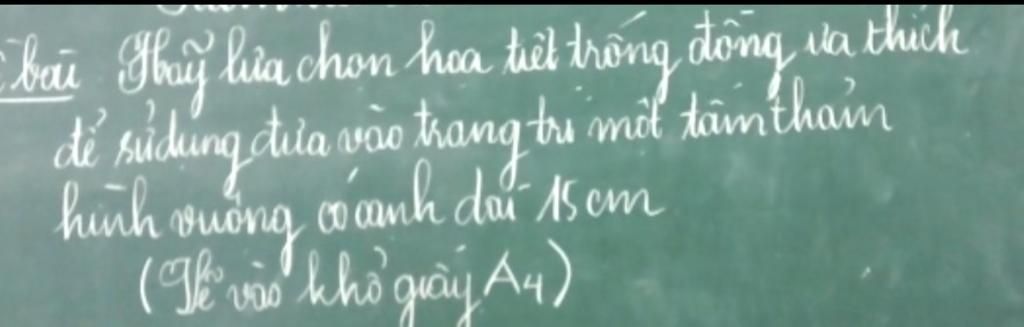 bài Hãy lựa chọn hoa tiết trống đồng ưa thích
để sử dụng đưa vào trang trí một tấm thảm
hình vuông có cạnh dài 15 cm
(Vẽ vào khổ giấy A4)